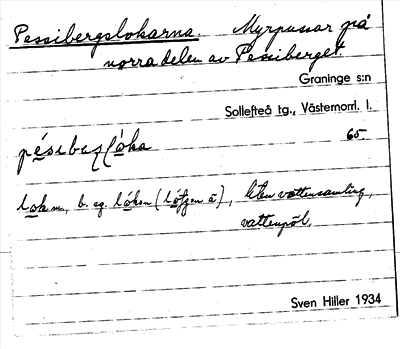 Pessibergslokarna. Myrpussar på
norra delen av Pessiberget.
Graninge s:n
Sollefteå tg., Västernorrl. l.
65.
lok m, b. sg. (), liten vattensamling,
vattenpöl.
Sven Hiller 1934